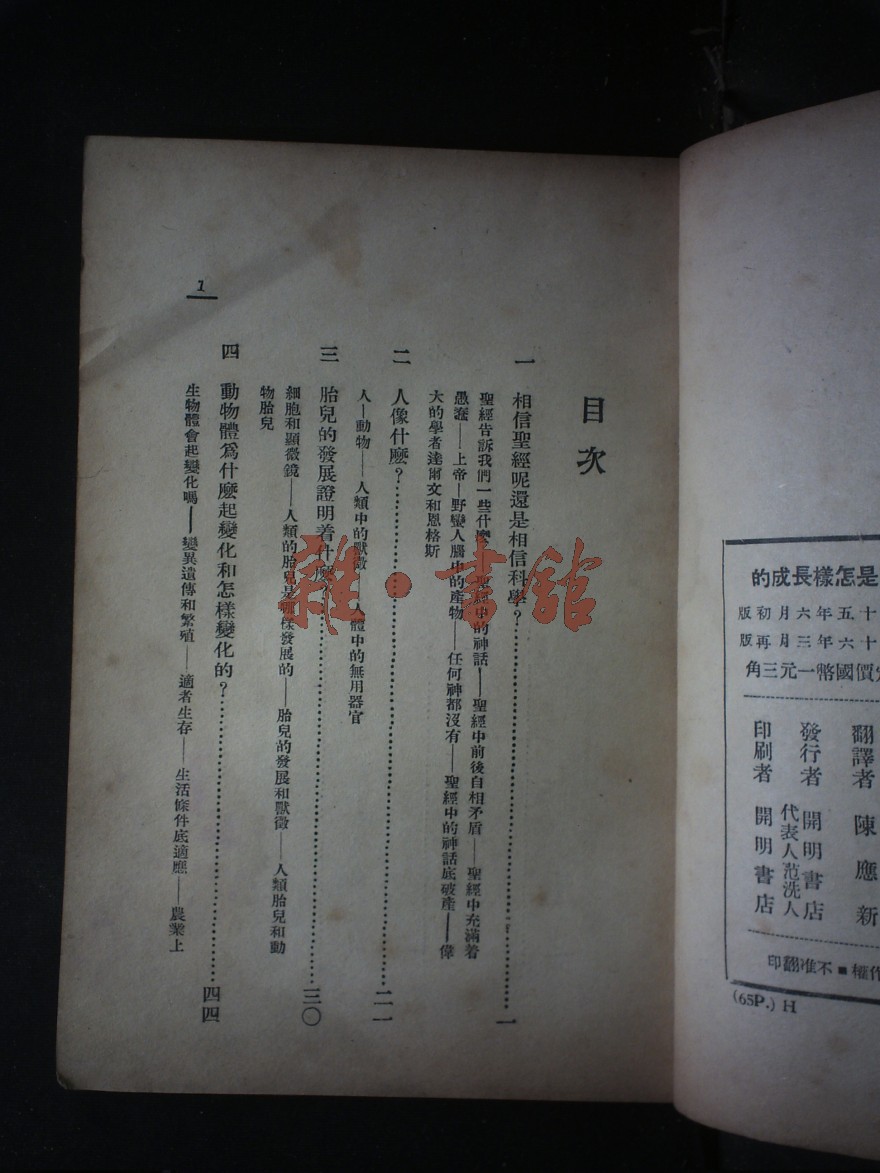 目次
一　相信聖經呢還是相信科學？……一
聖經告訴我們一些什麼——聖經中的神話——聖經中前後自相矛盾——聖經中充滿着
愚蠢——上帝—野蠻人腦中的產物——任何神都沒有——聖經中的神話底破產——偉
大的學者達爾文和恩格斯
二　人像什麼？……二一
人—動物——人類中的獸徵——人體中的無用器官
三　胎兒的發展證明着什麼？……三〇
細胞和顯微鏡——人類的胎兒是哪樣發展的——胎兒的發展和獸徵——人類胎兒和動
物胎兒
四　動物體爲什麼起變化和怎樣變化的？……四四
生物體會起變化嗎——變異遺傳和繁殖——適者生存——生活條件底適應——農業上
1
雜·書館
是怎樣長成的
十五年六月初版
十六年三月再版
價國幣一元三角
翻譯者　陳應新
發行者　開明書店
代表人范洗人
印刷者　開明書店
作權■不准翻印
(65P.) H